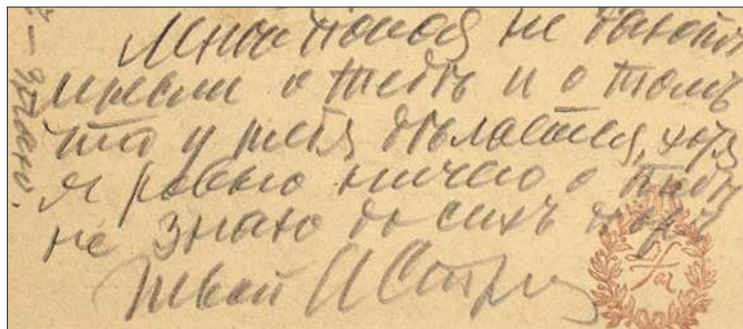 покоя не даютъ
мысли о тебѣ и о томъ
что у тебя дѣлается, хотя
я ровно ничего о тебѣ
не знаю до сихъ поръ
Твой
Lifar